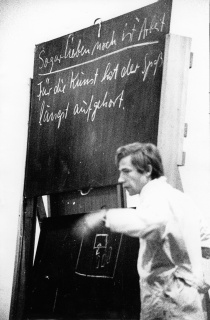 Sogar lieben noch ist Arbeit
Für die Kunst hat der Spaß
längst aufgehört.